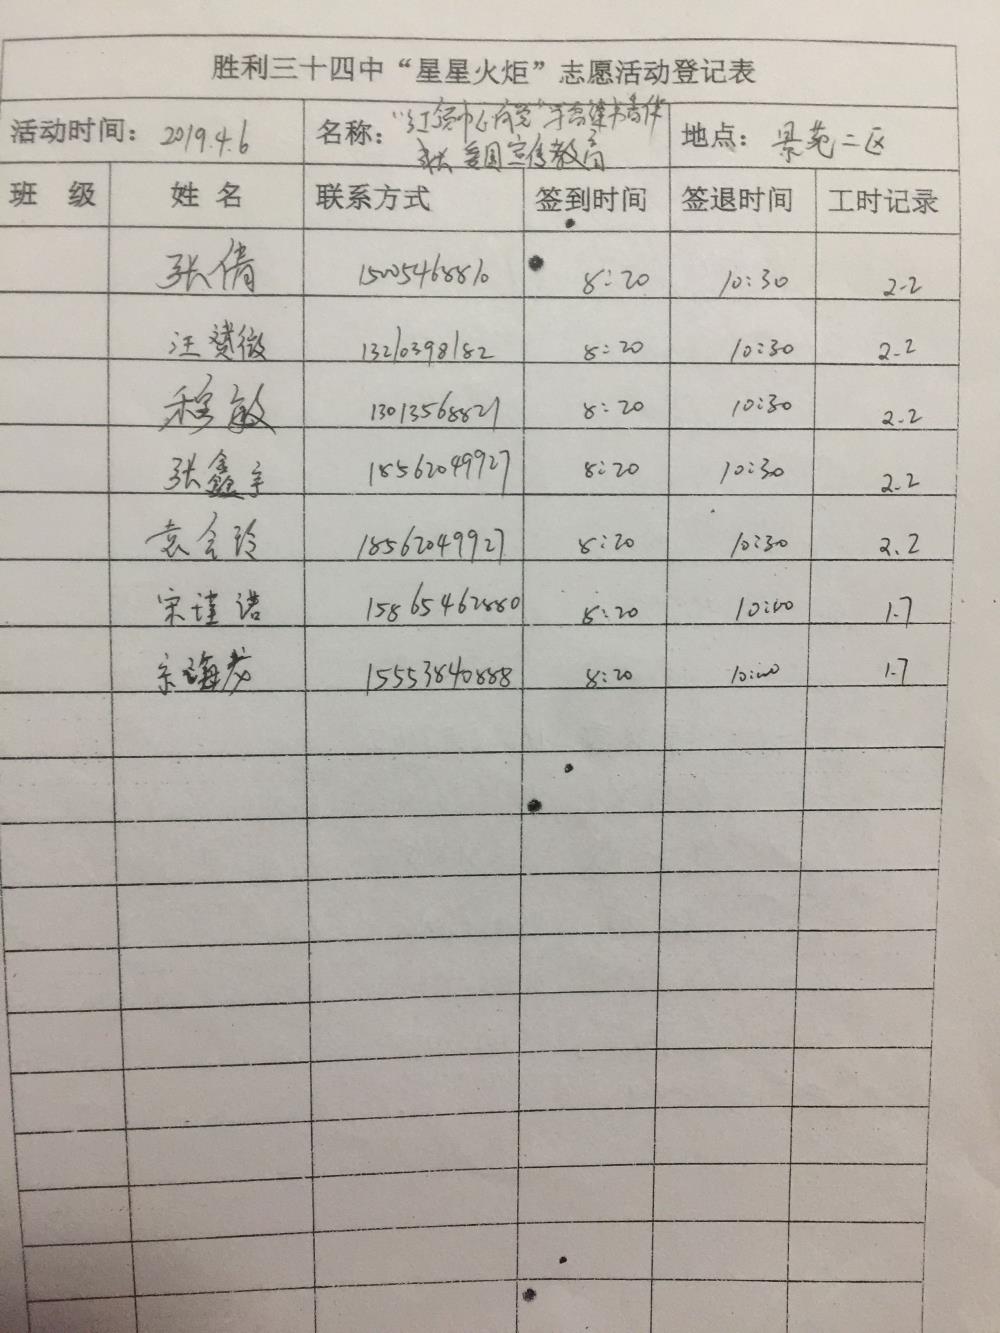 胜利三十四中“星星火炬”志愿活动登记表
活动时间: 2019.4.6 名称: “红领巾心向党” 地点: 景苑二区
爱国宣传教育
班 级 姓 名 联系方式 签到时间 签退时间 工时记录
张倩 15005468810 8:20 10:30 2.2
汪赟微 13210398182 8:20 10:30 2.2
程敏 13013568821 8:20 10:30 2.2
张鑫宇 18562049927 8:20 10:30 2.2
袁会玲 18562049927 8:20 10:30 2.2
宋瑾诺 15865462880 8:20 10:00 1.7
宋海龙 15553840888 8:20 10:00 1.7